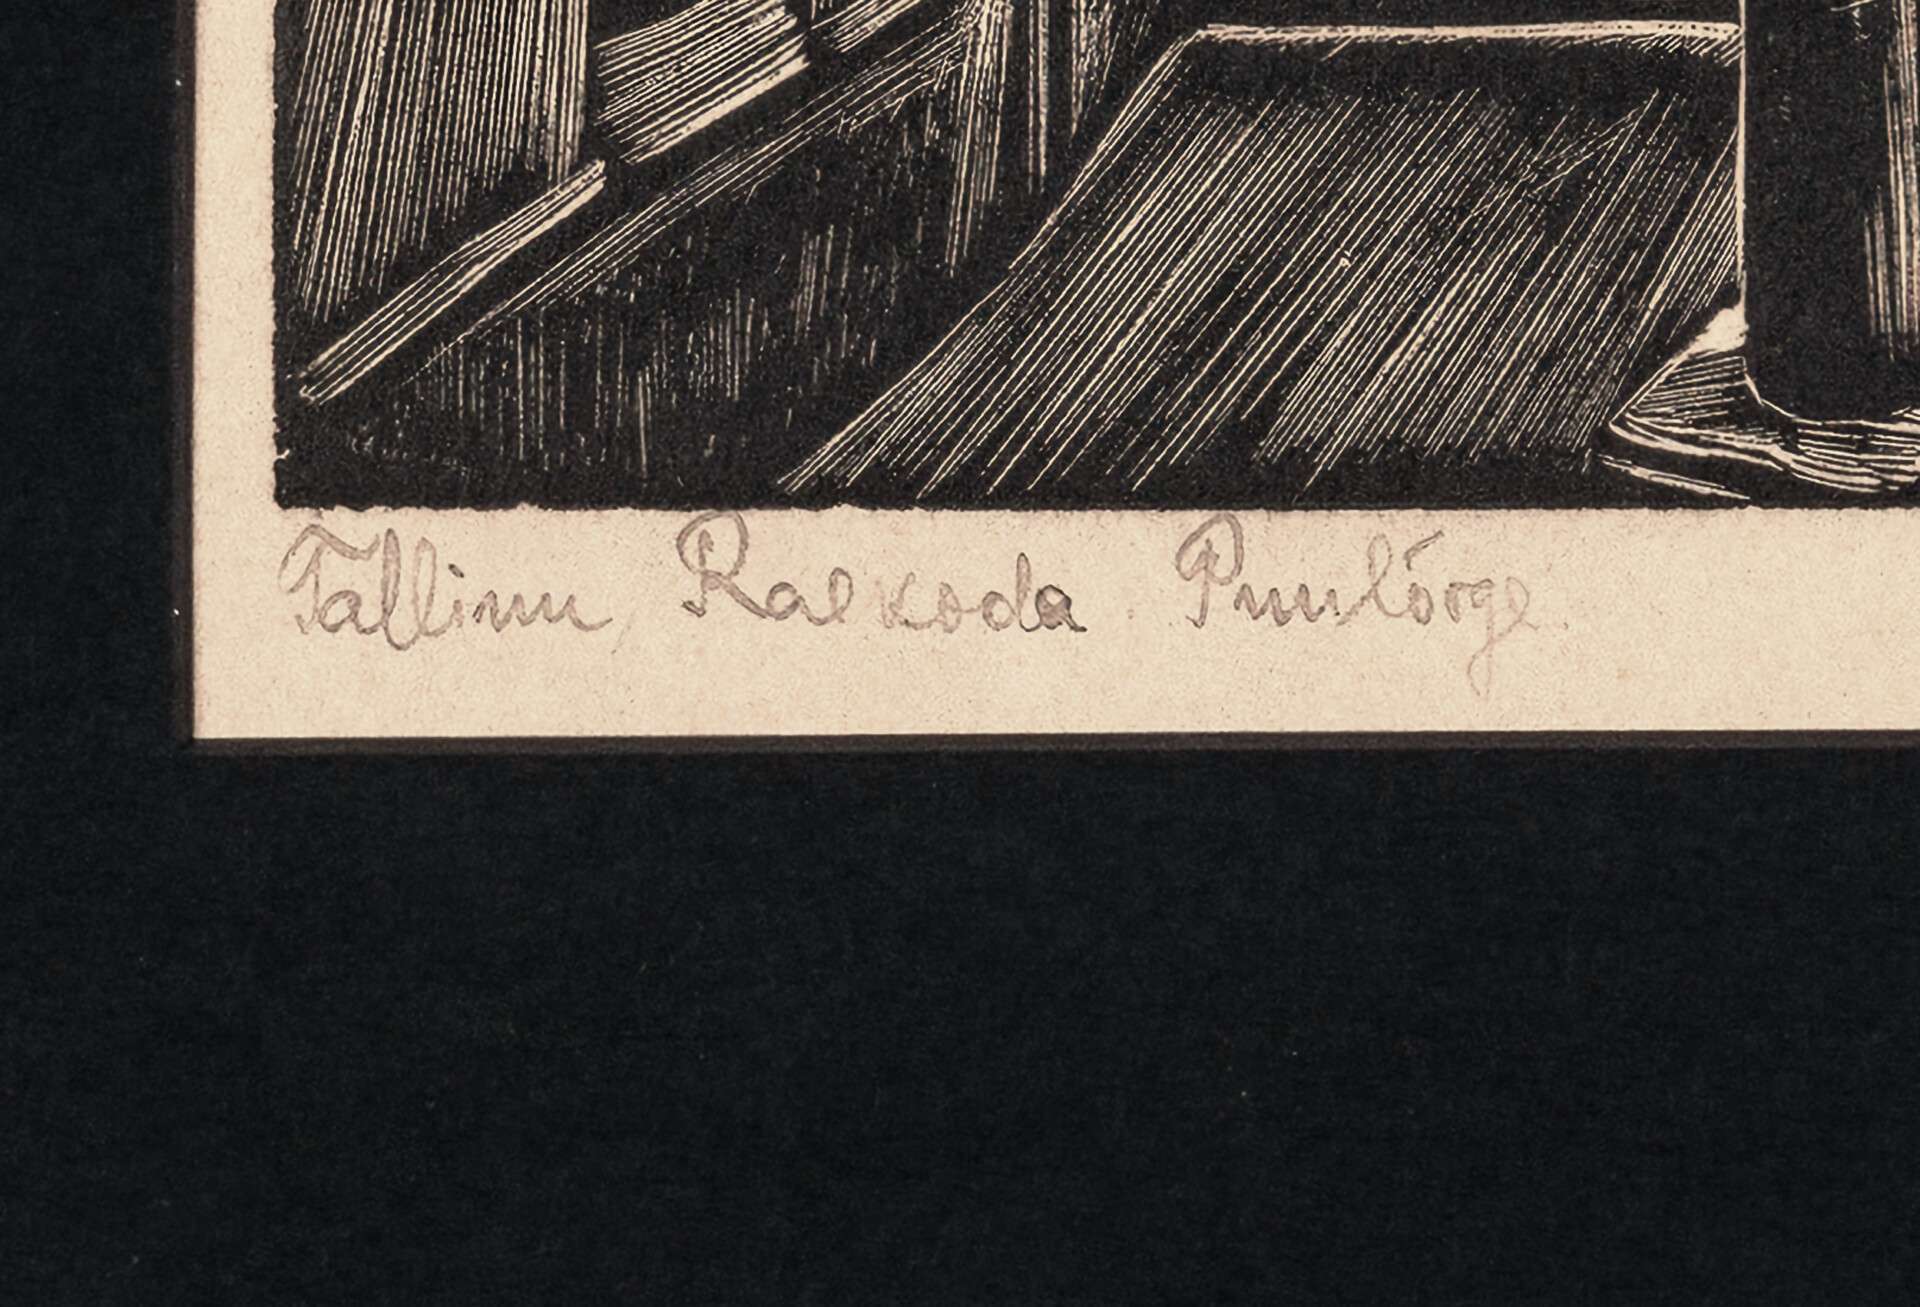 Tallinn, Raekoda. Puulõige